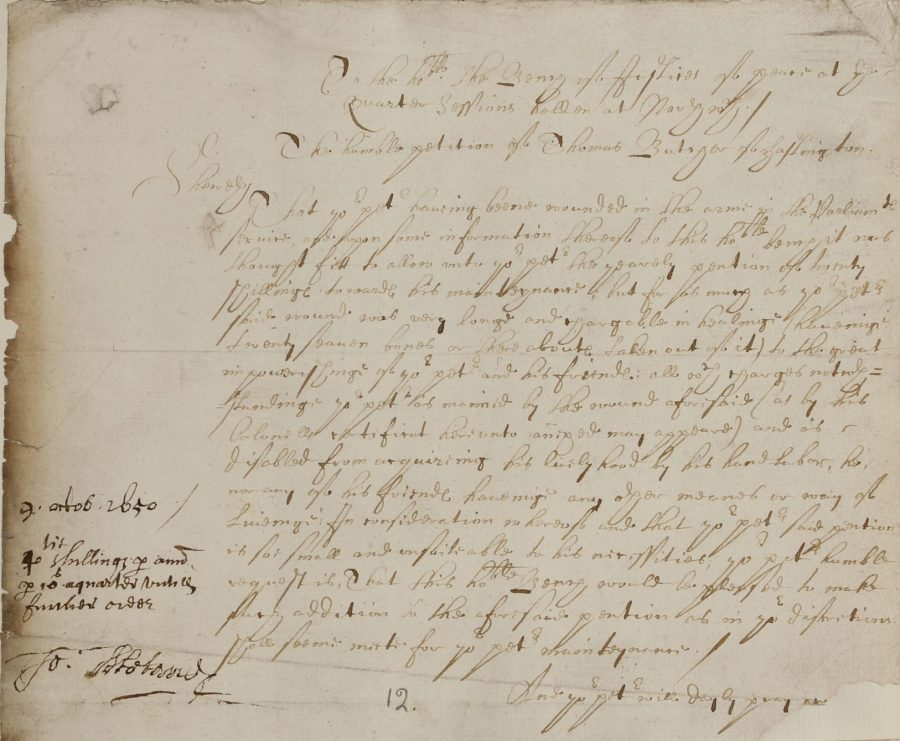 To the ho:ble the Bench of Justices of peace at ye
Quarter Sessions holden at
The humble petition of Thomas Butcher of
Sheweth
That yor petr haveing beene wounded in the armie in the Parliamts
service, and upon some information thereof to this hoble bench it was
thought fitt to allow unto yor petr the yearely pention of twenty
shillings towards his maintenance, but for as much as yor petrs
said wound was very longe and chargable in healinge (haveinge
twenty seaven bones or thereabouts taken out of it) to the great
impoverishinge of yor petr and his friends: all wch charges notwth=
standinge yor petr is maimed by the wound aforesaid (as by his
Colonells certificat hereunto anexed may appeare) and is
disabled from acquireing his livelyhood by his hand labor, he,
nor any of his friends haveinge any other meanes or way of
liveinge: In consideration whereof and that yor petrs said pention
is soe small and unsuiteable to his necessities, yor petrs humble
request is, That this hoble Bench would be pleased to make
such addition to the aforesaid pention as in yor discretions
shall seeme meete for yor petrs maintenance. /
And yor petr will dayly pray &c
9. octob. 1650 /
4tie shillings p annu
p 10s a quarter untill
further order
Jo:
12.